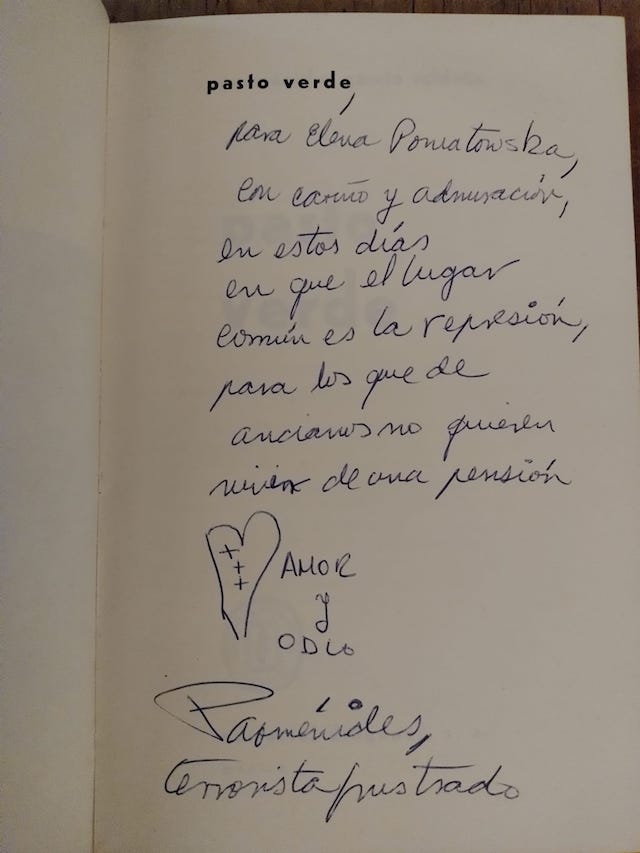 pasto verde,
para Elena Poniatowska,
con cariño y admiración,
en estos días
en que el lugar
común es la represión,
para los que de
ancianos no quieren
vivir de una pensión
+++
AMOR
y
ODIO
Parménides,
terrorista frustrado